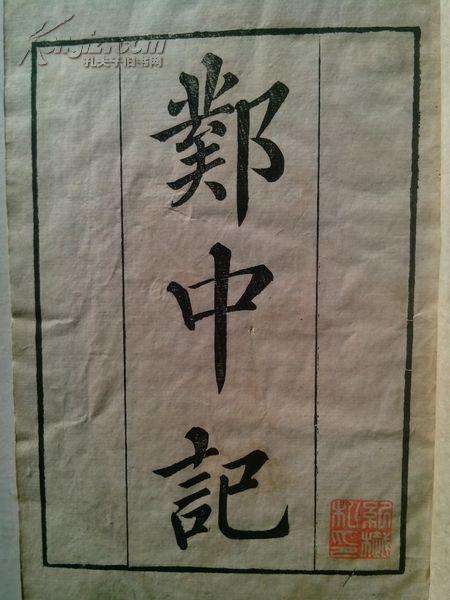 Kongfz.com
孔夫子旧书网
鄴中記